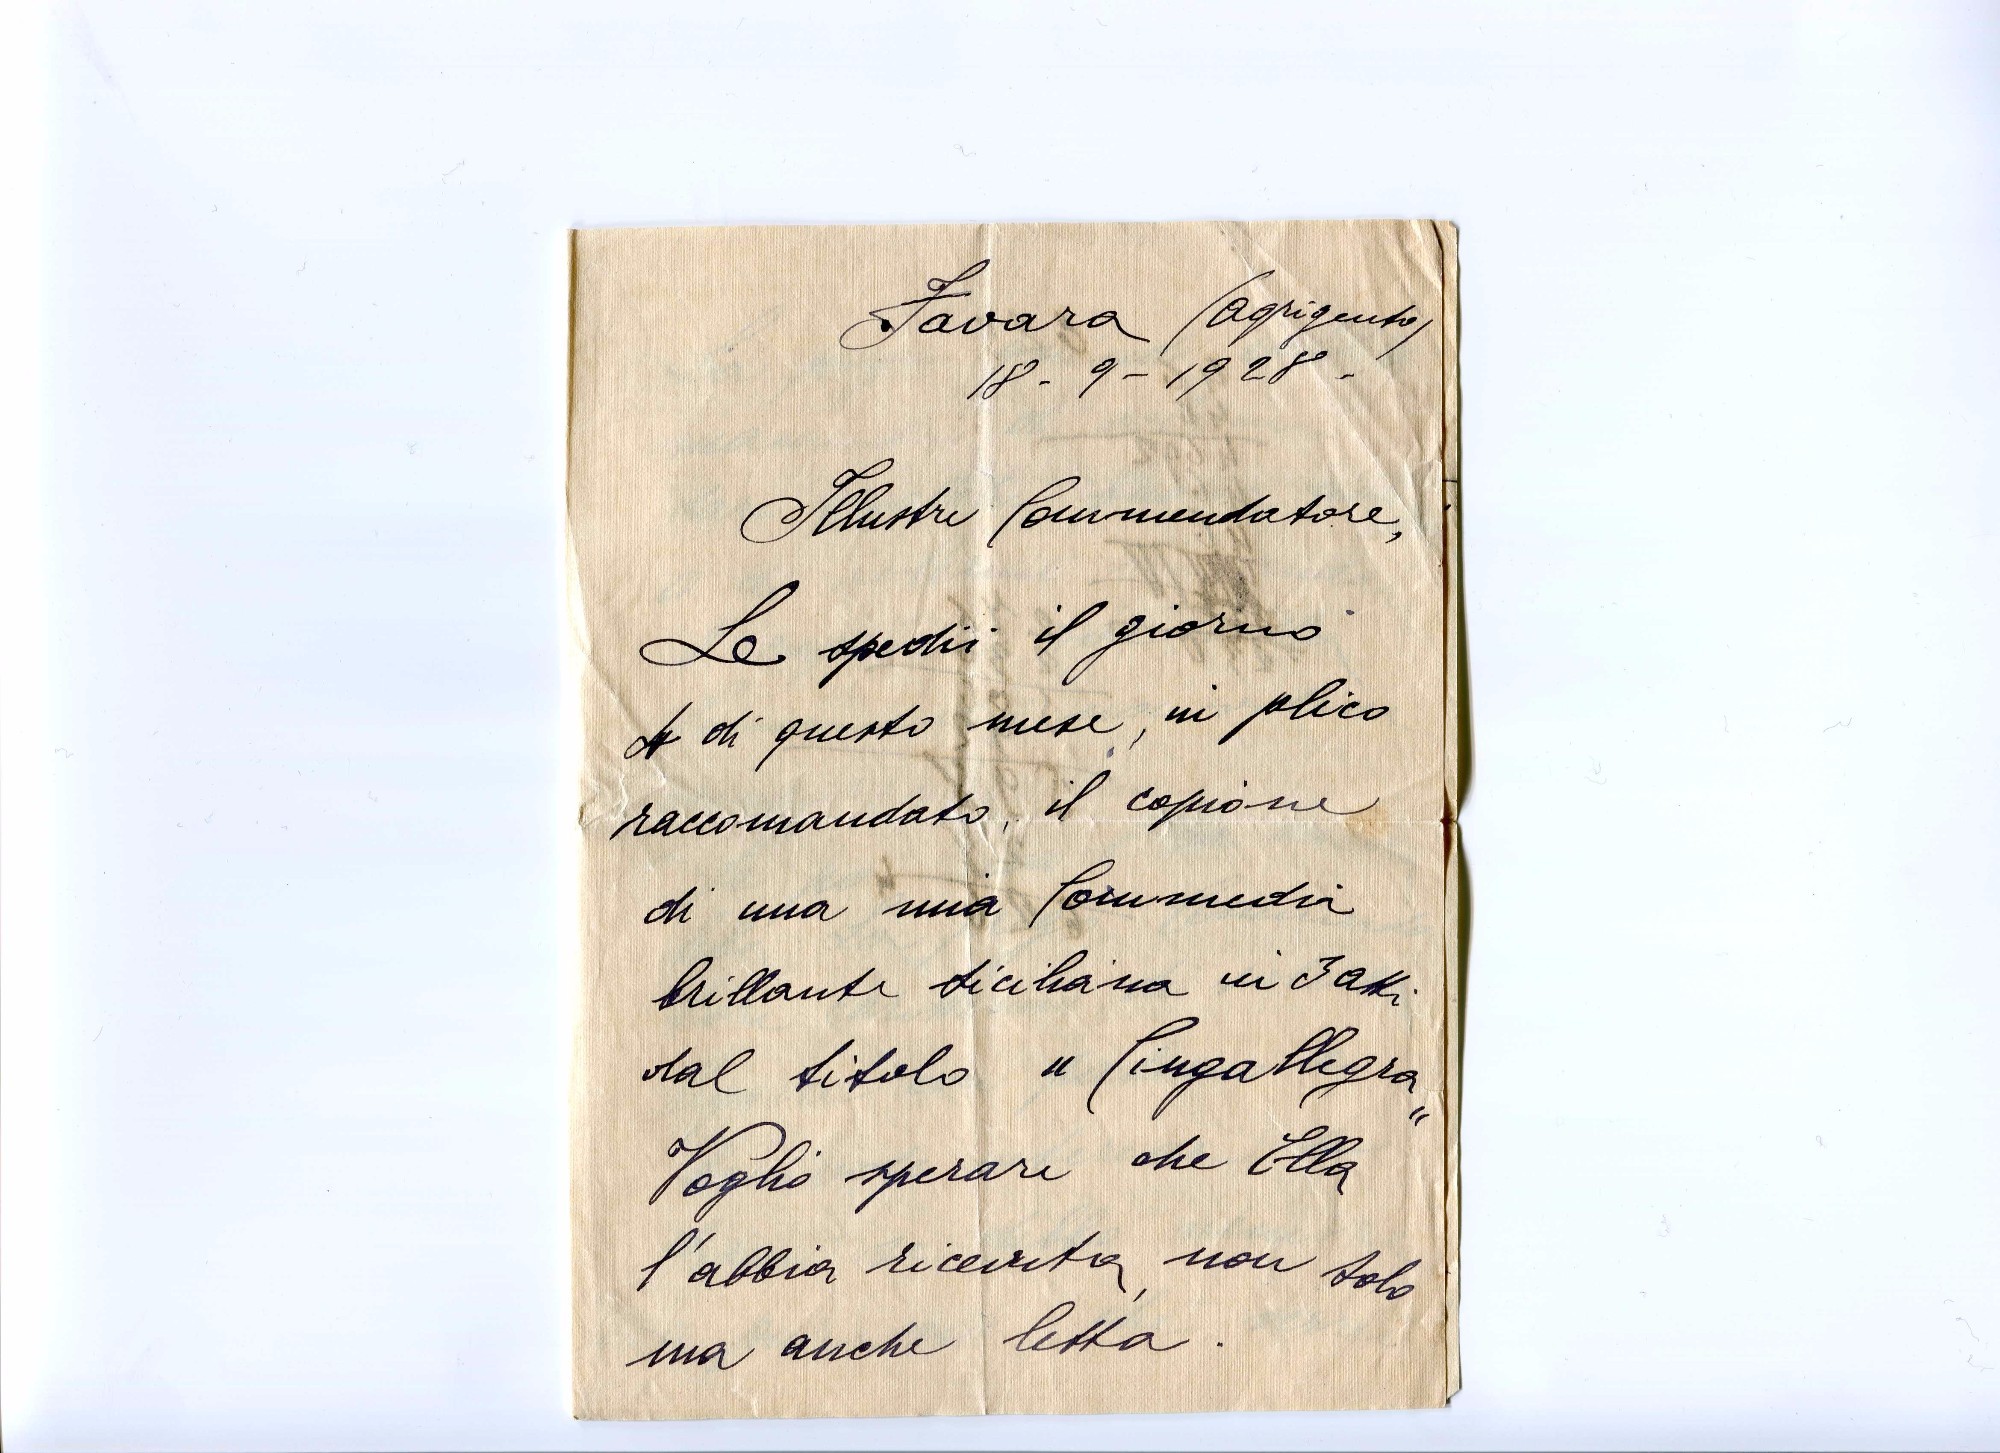 Favara (Agrigento)
18-9-1928-
Illustre Commendatore,
Le spedii il giorno
4 di questo mese, in plico
raccomandato, il copione
di una mia Commedia
brillante siciliana in 3 atti
dal titolo "Cingallegra"
Voglio sperare che Ella
l'abbia ricevuta, non solo
ma anche letta.